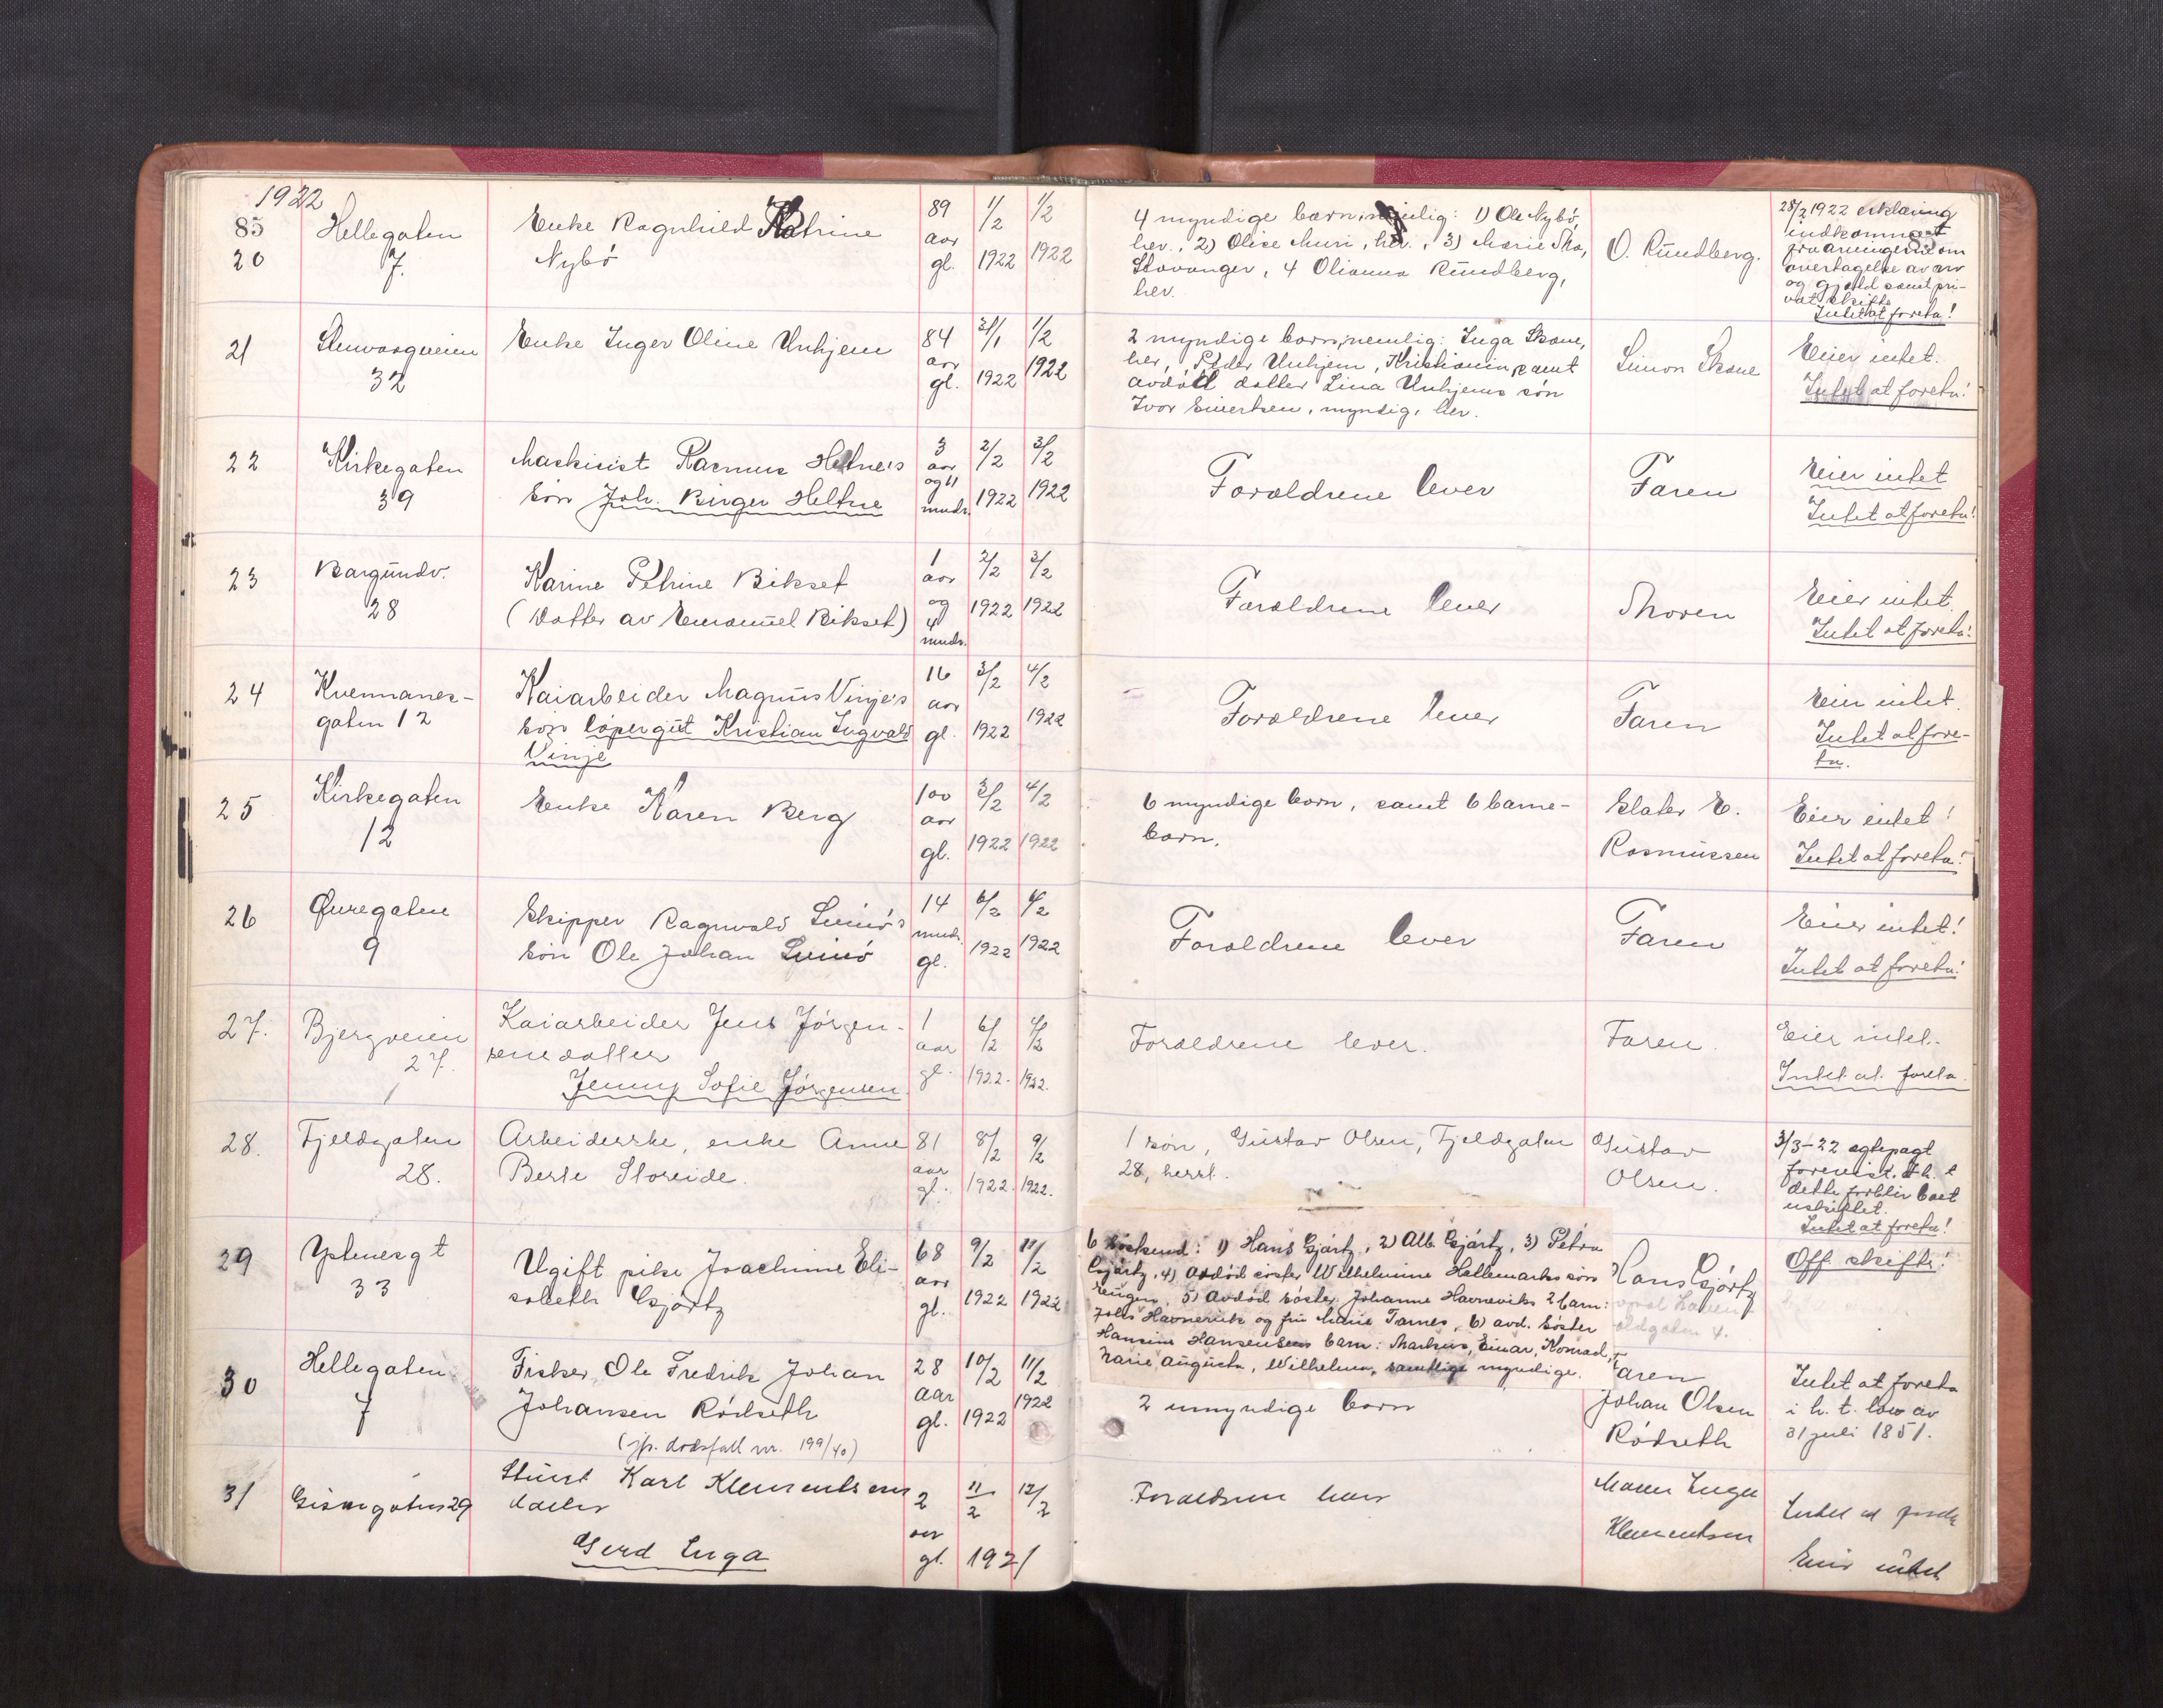 1922
85
20
Hellegaten
7.
Enke Ragnhild Katrine
Nybö
89
aar
gl.
1/2
1922
1/2
1922
4 myndige barn, nemlig: 1) Ole Nybö,
her., 2) Olise Muri, her., 3) Marie
Stavanger, 4 Olianna Rundberg,
her.
O. Rundberg.
28/2 1922 erklæring
indkommet
fra arvingerne om
overtagelse av arv
og gjæld samt pri-
vat skifte
Intet at foreta!
21
32
Enke Inger Oline Unhjem
84
aar
gl.
31/1
1922
1/2
1922
2 myndige barn, nemlig: Inga Skone,
her, Peder Unhjem, Kristiania, samt
avdöd datter Lina Unhjems sön
Ivar Eivertsen, myndig, her.
Simon Skone
Eier intet.
Intet at foreta!
22
Kirkegaten
39
Maskinist Rasmus Heltne's
sön Joh. Birger Heltne
3
aar
og 11
mndr.
2/2
1922
3/2
1922
Forældrene lever
Faren
Eier intet
Intet at foreta!
23
Borgundv.
28
Karine Petrine Bikset
(Datter av Emanuel Bikset)
1
aar
og
4
mndr.
2/2
1922
3/2
1922
Forældrene lever
Moren
Eier intet.
Intet at foreta!
24
Kvennanes-
gaten 12
Kaiarbeider Magnus Vinje's
sön löpergut Kristian Ingvald
Vinje
16
aar
gl.
3/2
1922
4/2
1922
Forældrene lever
Faren
Eier intet.
Intet at fore-
ta.
25
Kirkegaten
12
Enke Karen Berg
100
aar
gl.
3/2
1922
4/2
1922
6 myndige barn, samt 6 barne-
barn.
Slater E.
Rasmussen
Eier intet!
Intet at foreta!
26
Øuregaten
9
Skipper Ragnvald
sön Ole Johan
14
mndr.
gl.
6/2
1922
6/2
1922
Forældrene lever
Faren
Eier intet!
Intet at foreta!
27.
Bjergveien
27.
Kaiarbeider Jens Jörgen-
sens datter
Jenny Sofie Jörgensen
1
aar
gl.
6/2
1922.
1922.
Forældrene lever.
Faren.
Eier intet.
Intet at foreta.
28.
Fjeldgaten
28.
Arbeiderske, enke Anne
Berte Storeide.
81
aar
gl.
8/2
1922.
9/2
1922.
1 sön, Gustav Olsen, Fjeldgaten
28, herst.
Gustav
Olsen.
3/3-22 egtepagt
forevist. I h. t
dette forblir boet
uskiftet.
Intet at foreta!
29
Ystenesgt
33
Ugift pike Joachime Eli-
sabeth Gjörtz
68
aar
gl.
9/2
1922
11/2
1922
6 söskend: 1) Hans Gjörtz, 2) Alb. Gjörtz, 3) Petra
Gjörtz, 4) Avdöd söster Wilhelmine Hellemarks sön
Eugen, 5) Avdöd söster Johanne Havneviks 2 barn:
Johs Havnevik og fru Marie Tarnes, 6) avd. söster
Hansine Hansensens barn: Markus, Einar, Konrad,
Marie Augusta, Wilhelmn, samtlige myndige.
Hans Gjörtz
Off. skifte!
30
Hellegaten
7
Fisker Ole Fredrik Johan
Johansen Rödseth
(jfr. dödsfall nr. 199/40)
28
aar
gl.
10/2
1922
11/2
1922
2 umyndige barn
Faren
Johan Olsen
Rödseth
Intet at foreta
i h. t. lov av
31 juli 1851.
31
Giskegaten 29
Stuert Karl Klementsens
datter
Gerd Inga
2
aar
gl.
11/2
1921
12/2
Forældrene lever
Moren Inga
Klementsen
Intet at foreta
Eier intet